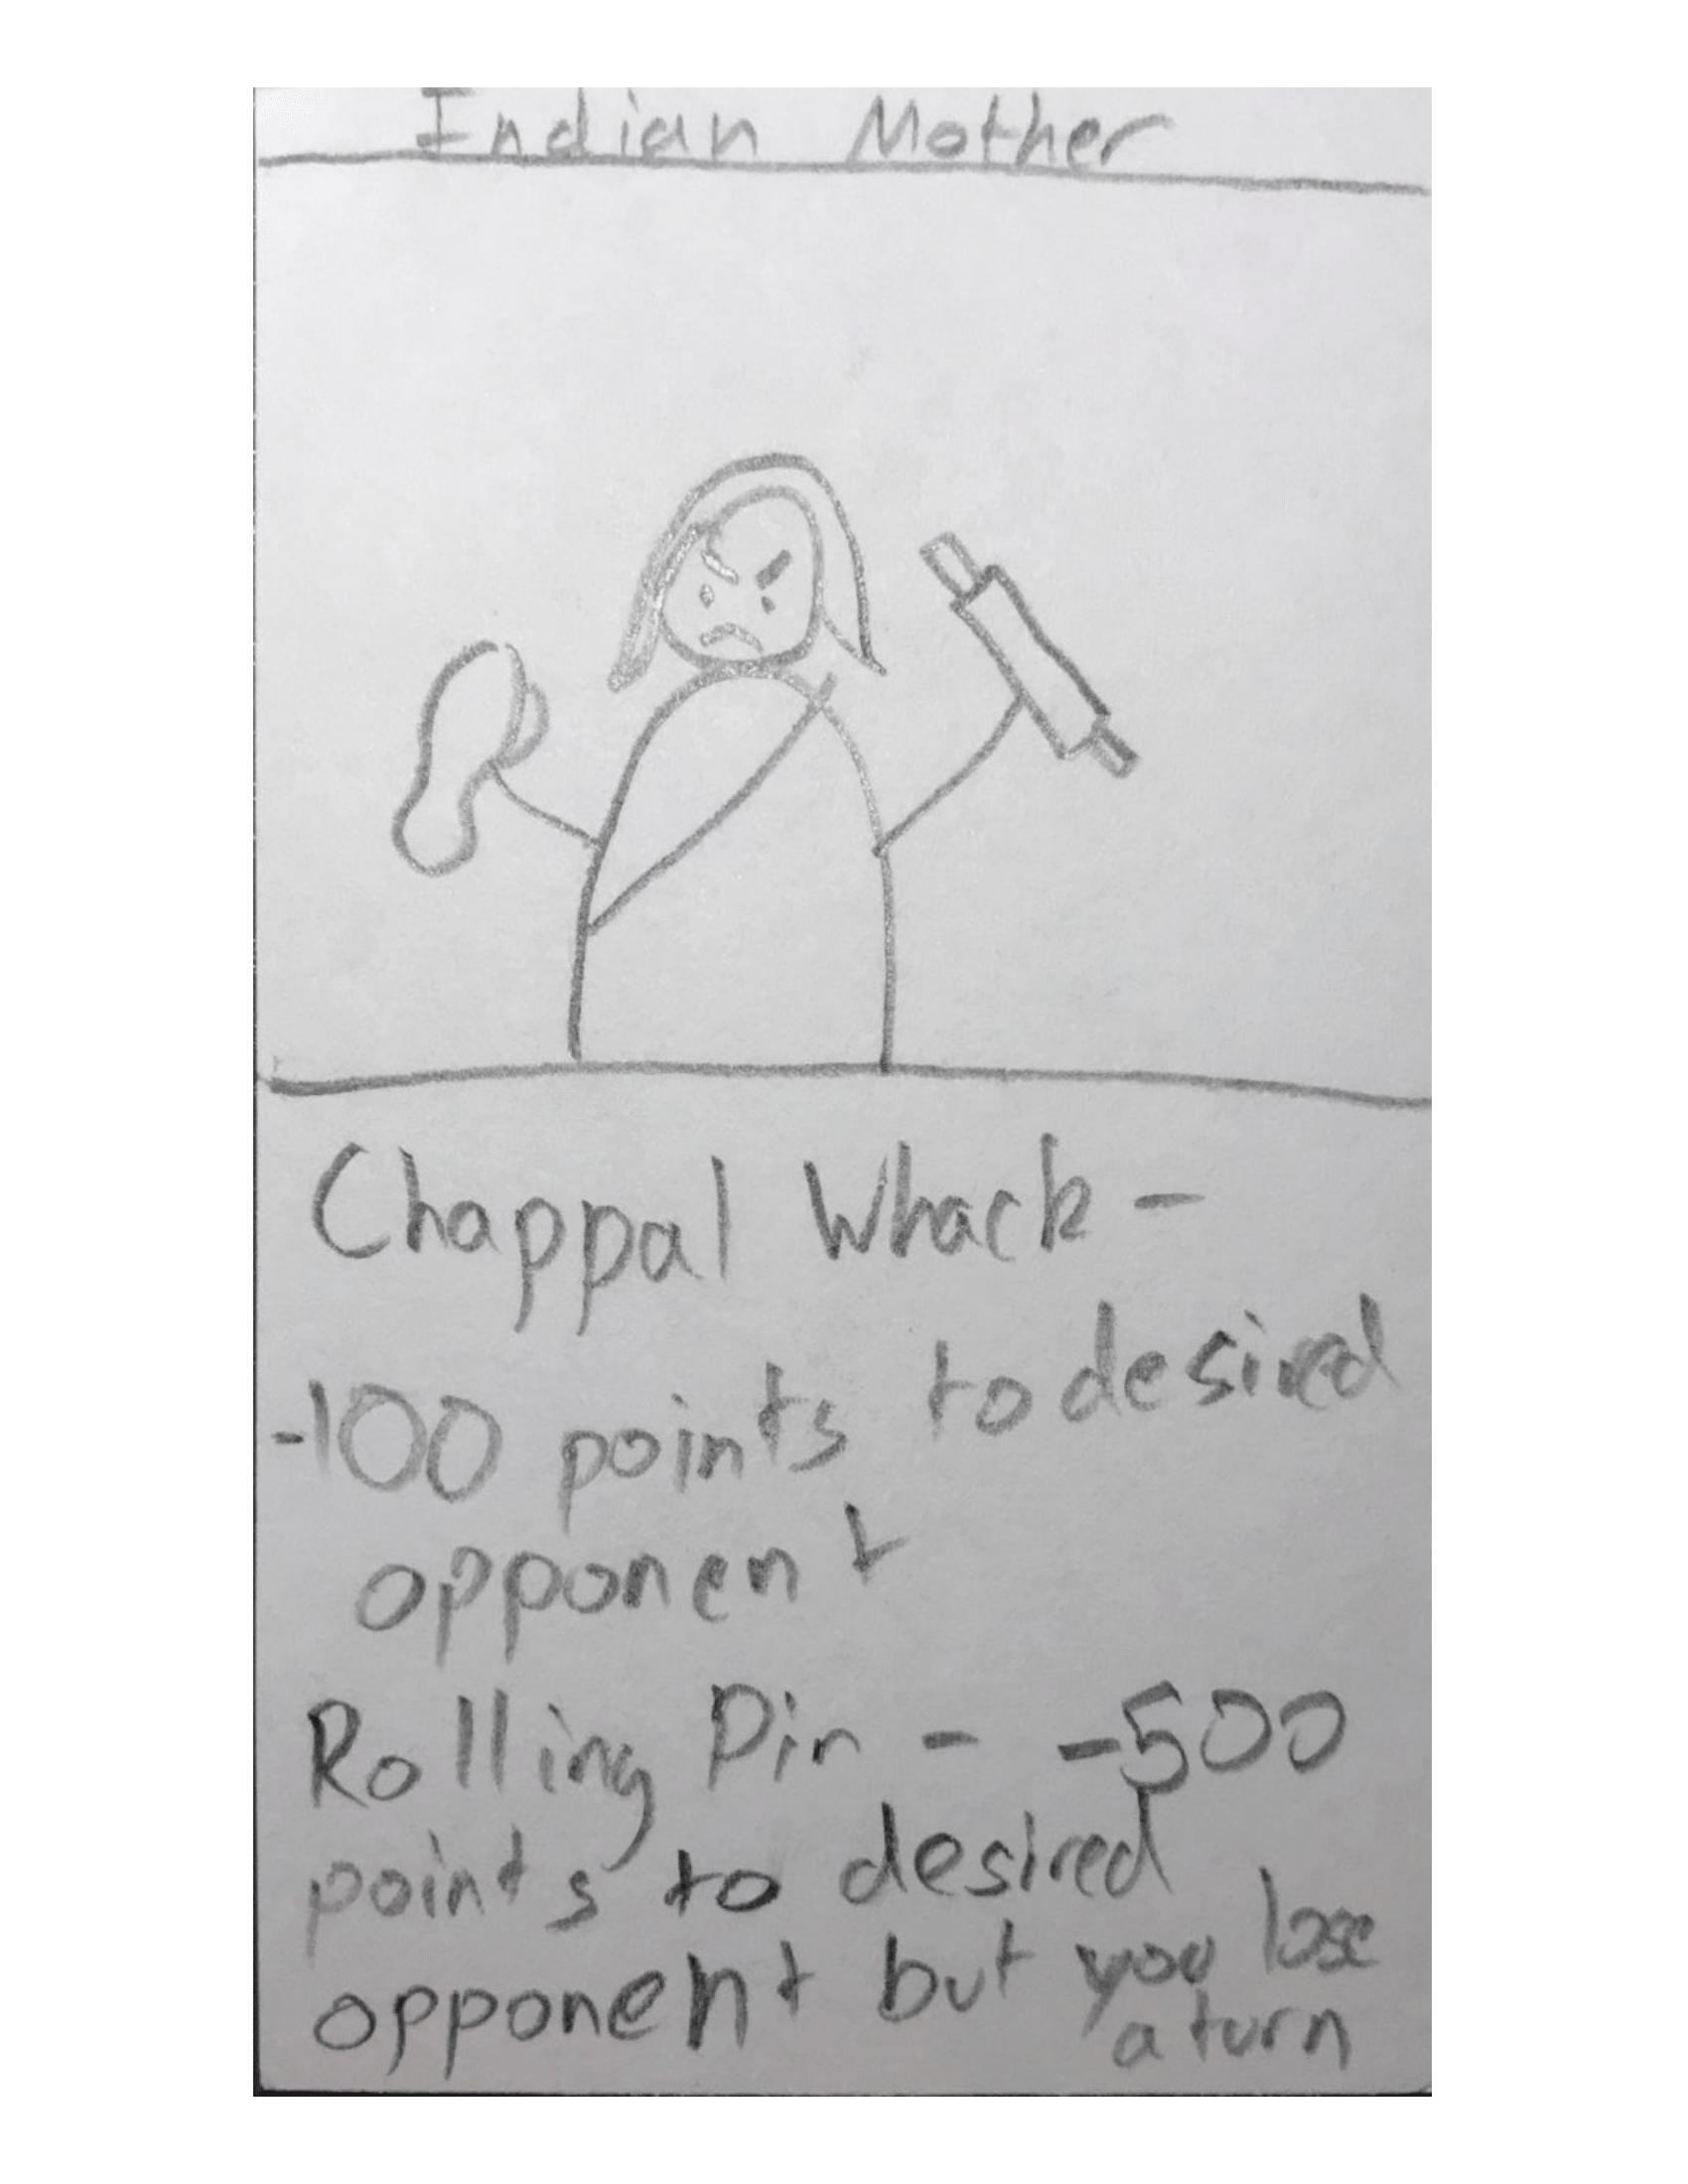 Indian Mother
Chappal Whack -
-100 points to desired
opponent
Rolling Pin - -500
points to desired
opponent but you lose
a turn